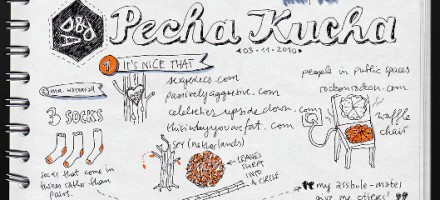 Pecha Kucha
03·11·2010
1 IT'S NICE THAT
passivelyaggressive.com
celebrities upside down.com
thisiswhyyouarefat.com
SPY (netherlands)
people in public spaces
3 SOCKS
socks that come in
threes rather than
pairs.
LEAVES
SWEPT
INTO
A CIRCLE
waffle
chair
my asshole-mates
give me others!